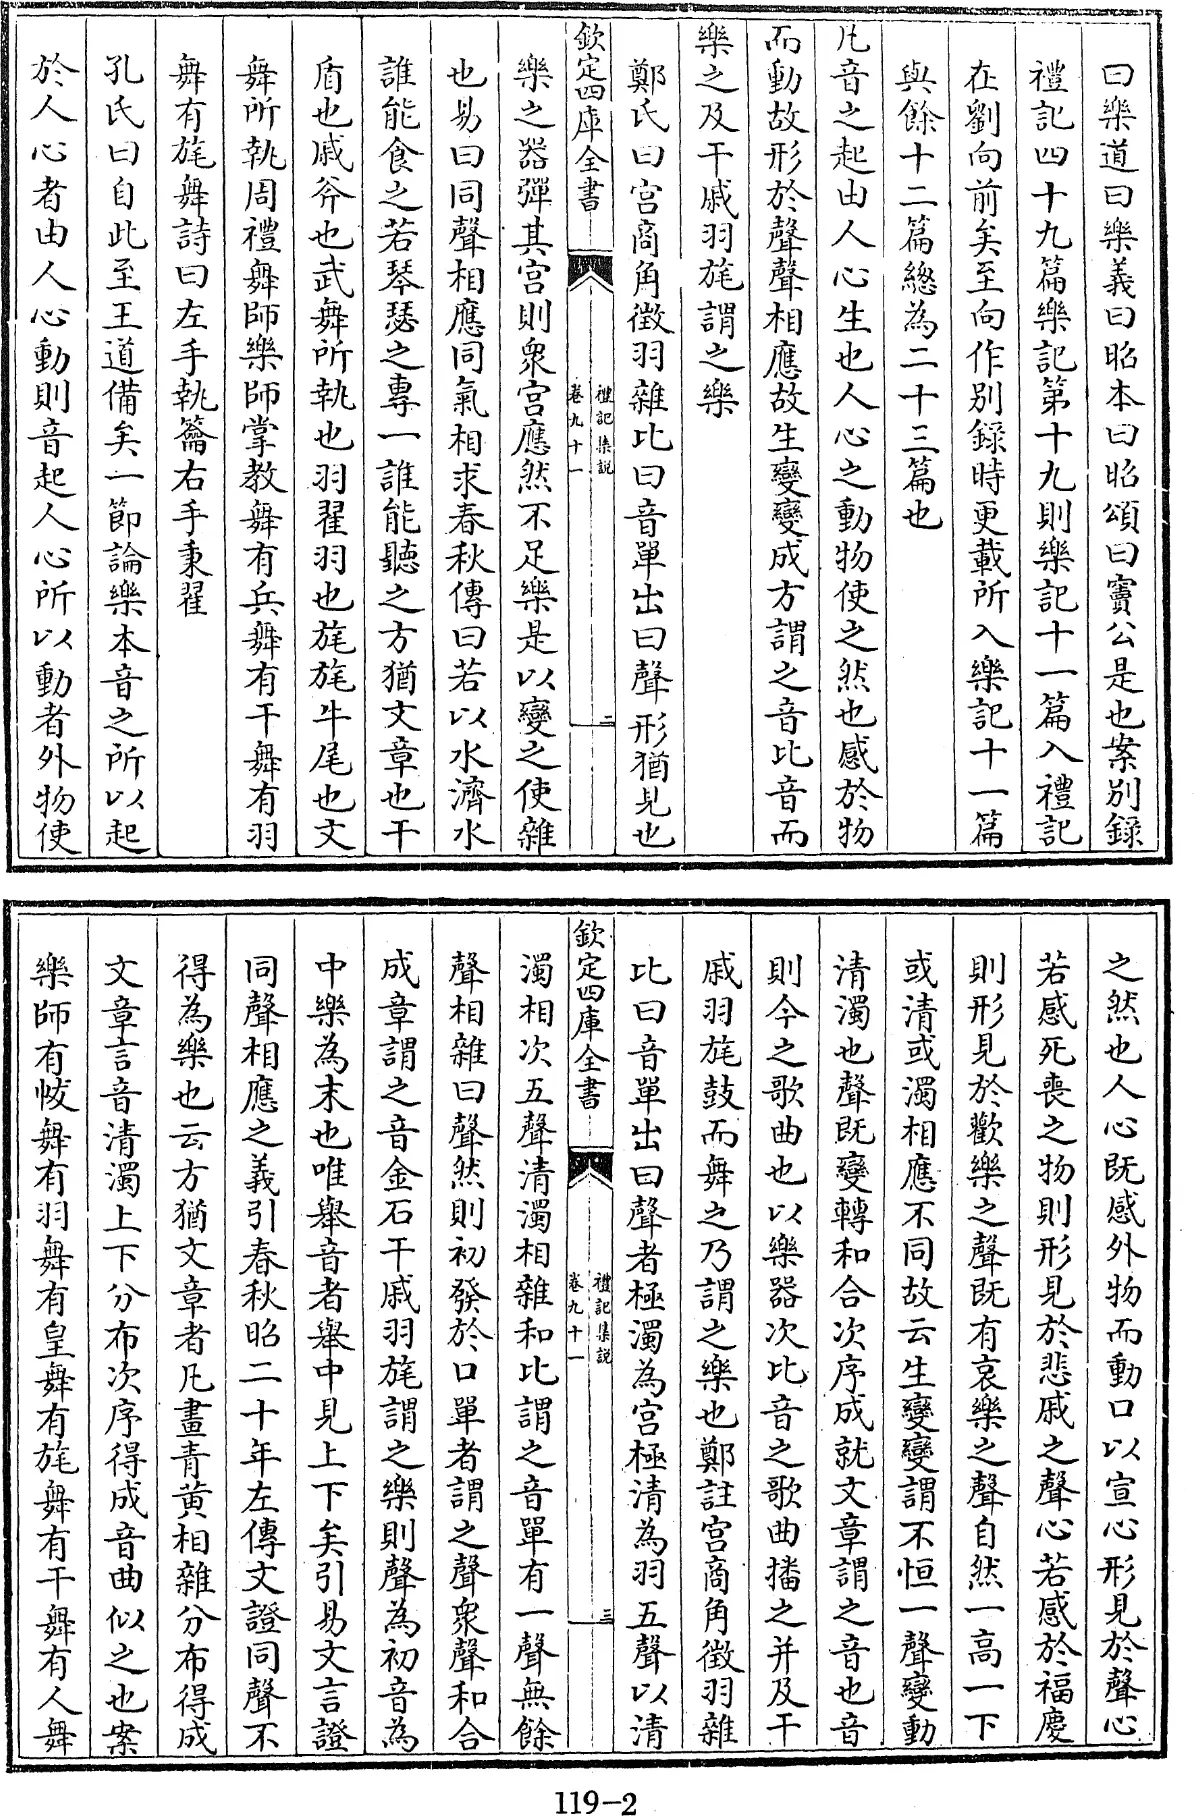 曰樂道曰樂義曰昭本曰昭頌曰竇公是也案别録
禮記四十九篇樂記第十九則樂記十一篇入禮記
在劉向前矣至向作别録時更載所入樂記十一篇
與餘十二篇總為二十三篇也
凡音之起由人心生也人心之動物使之然也感於物
而動故形於聲聲相應故生變變成方謂之音比音而
樂之及干戚羽旄謂之樂
鄭氏曰宫商角徵羽雜比曰音單出曰聲形猶見也
欽定四庫全書
禮記集説
卷九十一
二
樂之器彈其宫則衆宫應然不足樂是以變之使雜
也易曰同聲相應同氣相求春秋傳曰若以水濟水
誰能食之若琴瑟之專一誰能聽之方猶文章也干
盾也戚斧也武舞所執也羽翟羽也旄旄牛尾也文
舞所執周禮舞師樂師掌教舞有兵舞有干舞有羽
舞有旄舞詩曰左手執籥右手秉翟
孔氏曰自此至王道備矣一節論樂本音之所以起
於人心者由人心動則音起人心所以動者外物使
之然也人心既感外物而動口以宣心形見於聲心
若感死喪之物則形見於悲戚之聲心若感於福慶
則形見於歡樂之聲既有哀樂之聲自然一高一下
或清或濁相應不同故云生變變謂不恒一聲變動
清濁也聲既變轉和合次序成就文章謂之音也音
則今之歌曲也以樂器次比音之歌曲播之并及干
戚羽旄鼓而舞之乃謂之樂也鄭註宫商角徵羽雜
比曰音單出曰聲者極濁為宫極清為羽五聲以清
欽定四庫全書
禮記集説
卷九十一
三
濁相次五聲清濁相雜和比謂之音單有一聲無餘
聲相雜曰聲然則初發於口單者謂之聲衆聲和合
成章謂之音金石干戚羽旄謂之樂則聲為初音為
中樂為末也唯舉音者舉中見上下矣引易文言證
同聲相應之義引春秋昭二十年左傳文證同聲不
得為樂也云方猶文章者凡畫青黄相雜分布得成
文章言音清濁上下分布次序得成音曲似之也案
樂師有帗舞有羽舞有皇舞有旄舞有干舞有人舞
119-2